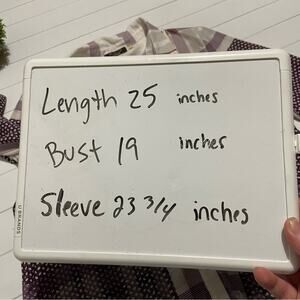 Length 25 inches
Bust 19 inches
Sleeve 23 3/4 inches
U BRANDS